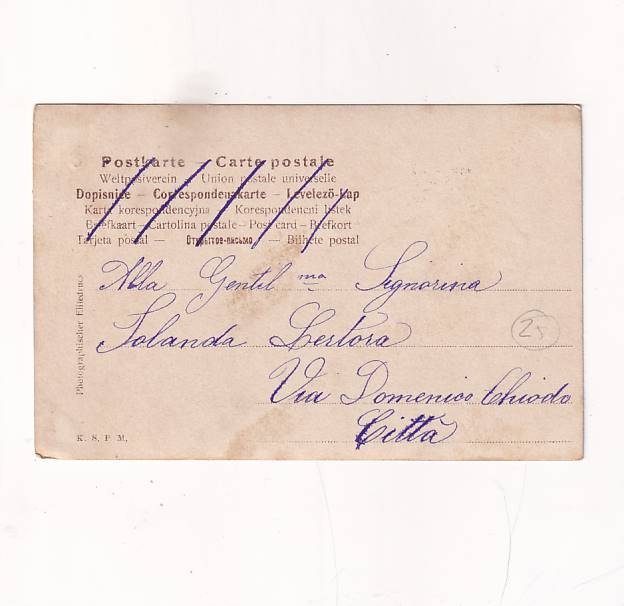 Postkarte – Carte postale
Weltpostverein – Union postale universelle
Dopisnice – Correspondenzkarte – Levelező-Lap
Karta korespondencyjna – Korespondenčni listek
Briefkaart – Cartolina postale – Post card – Brefkort
Tarjeta postal – Открытое-письмо – Bilhete postal
Alla Gentil ma Signorina
Iolanda Bertora
Via Domenico Chiodo
Città
25
Photographischer Eilitedruck
K. S. P. M.